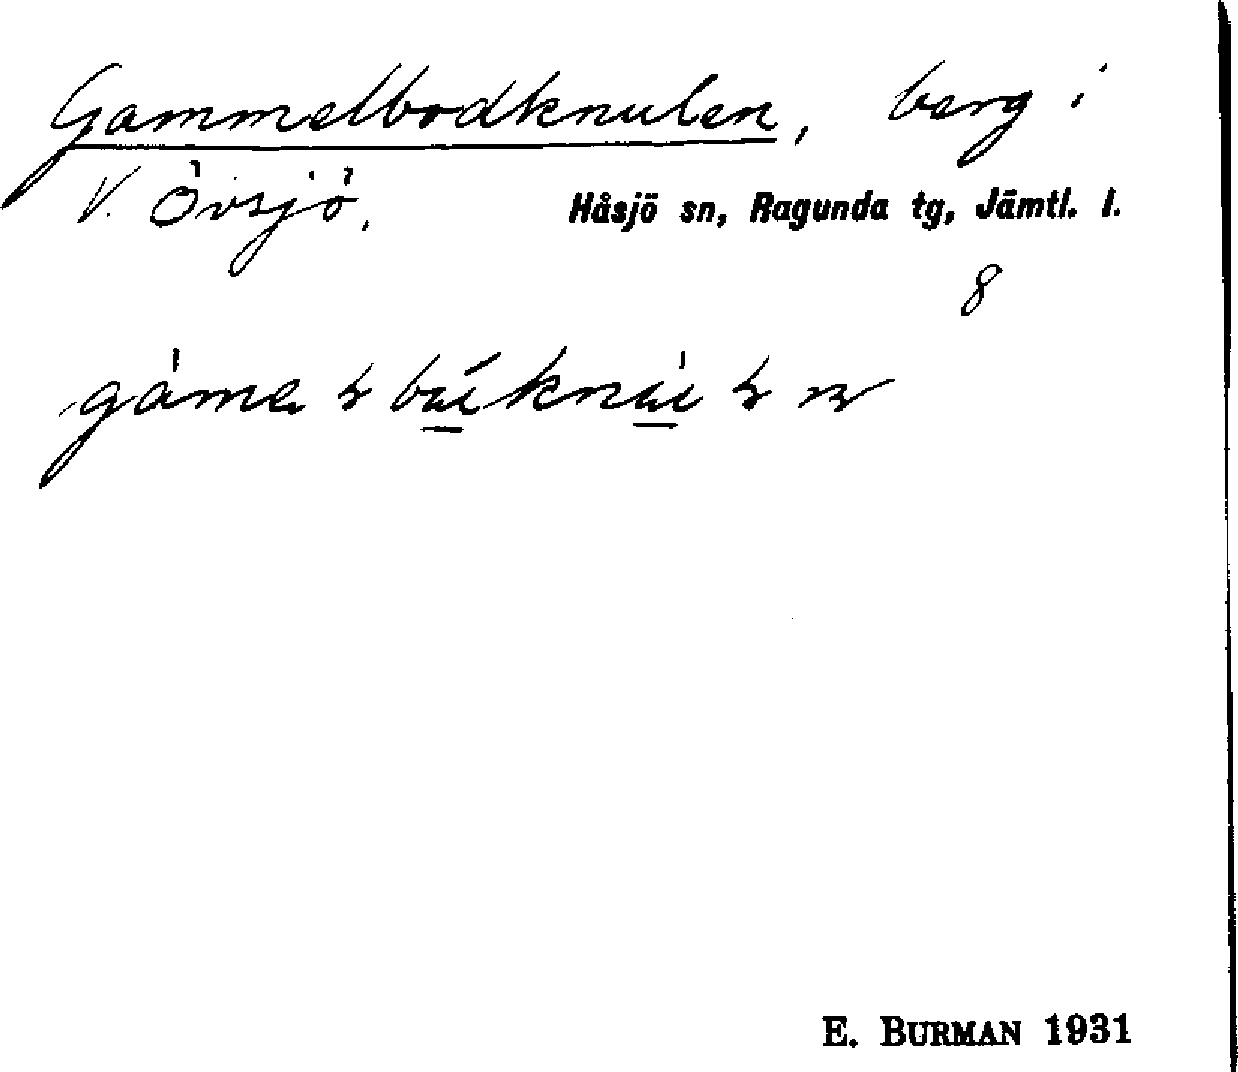 Gammelbodknulen, berg i
V. Övsjö, Håsjö sn, Ragunda tg, Jämtl. l.
8
E. BURMAN 1931